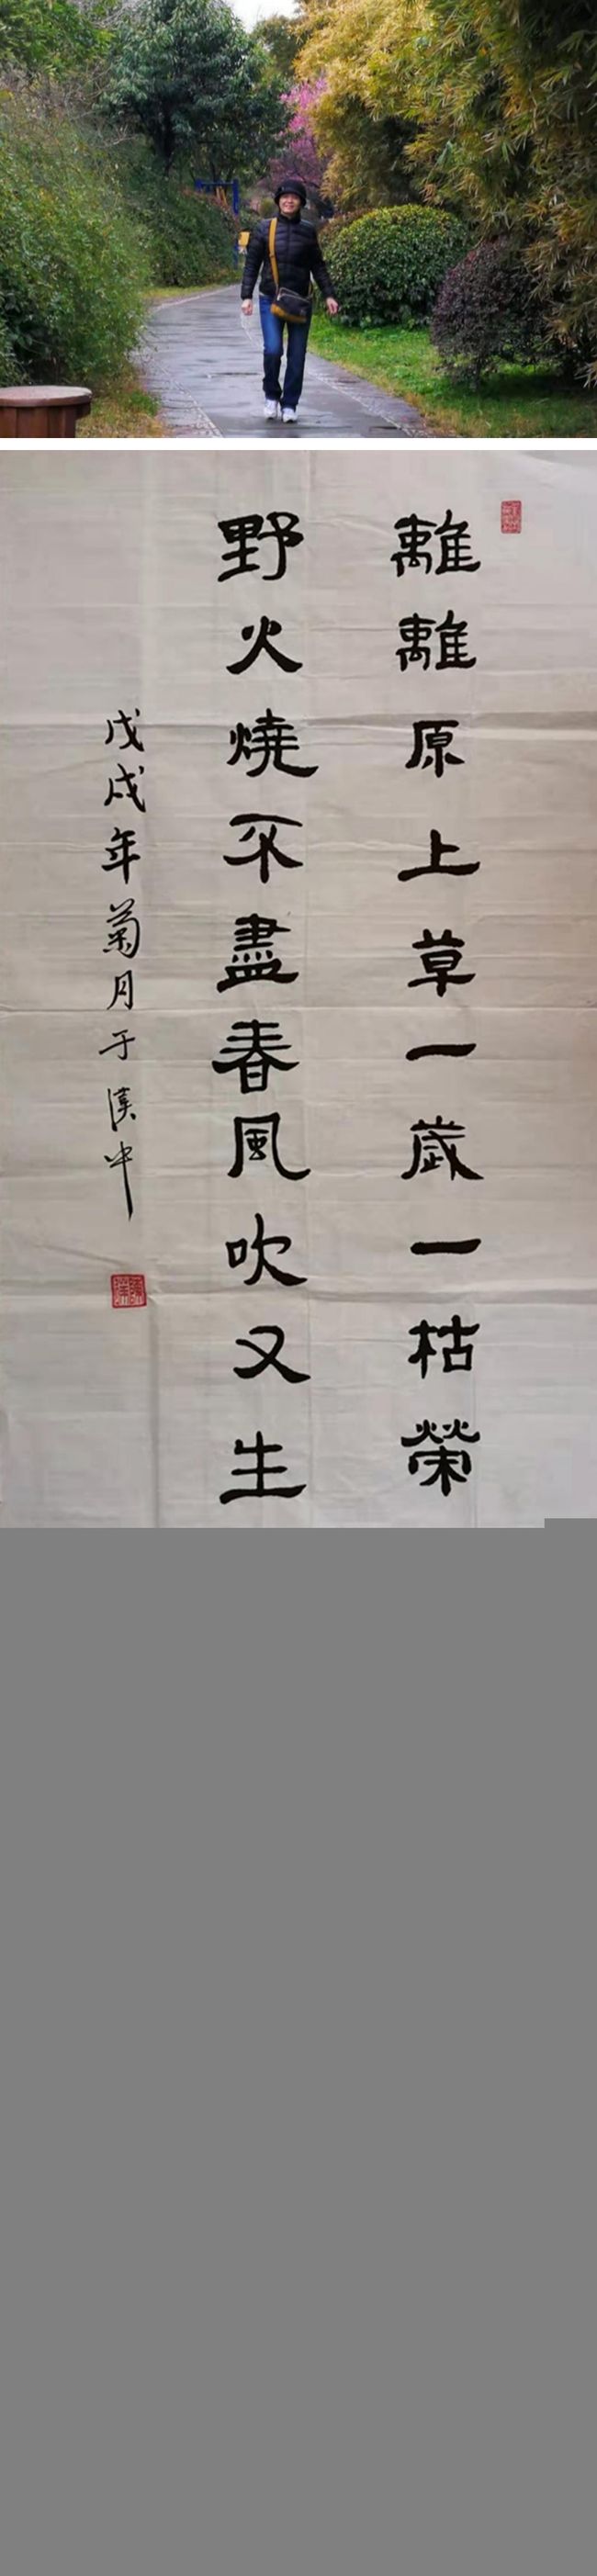 離離原上草一歲一枯榮
野火燒不盡春風吹又生
戊戌年菊月于漢中